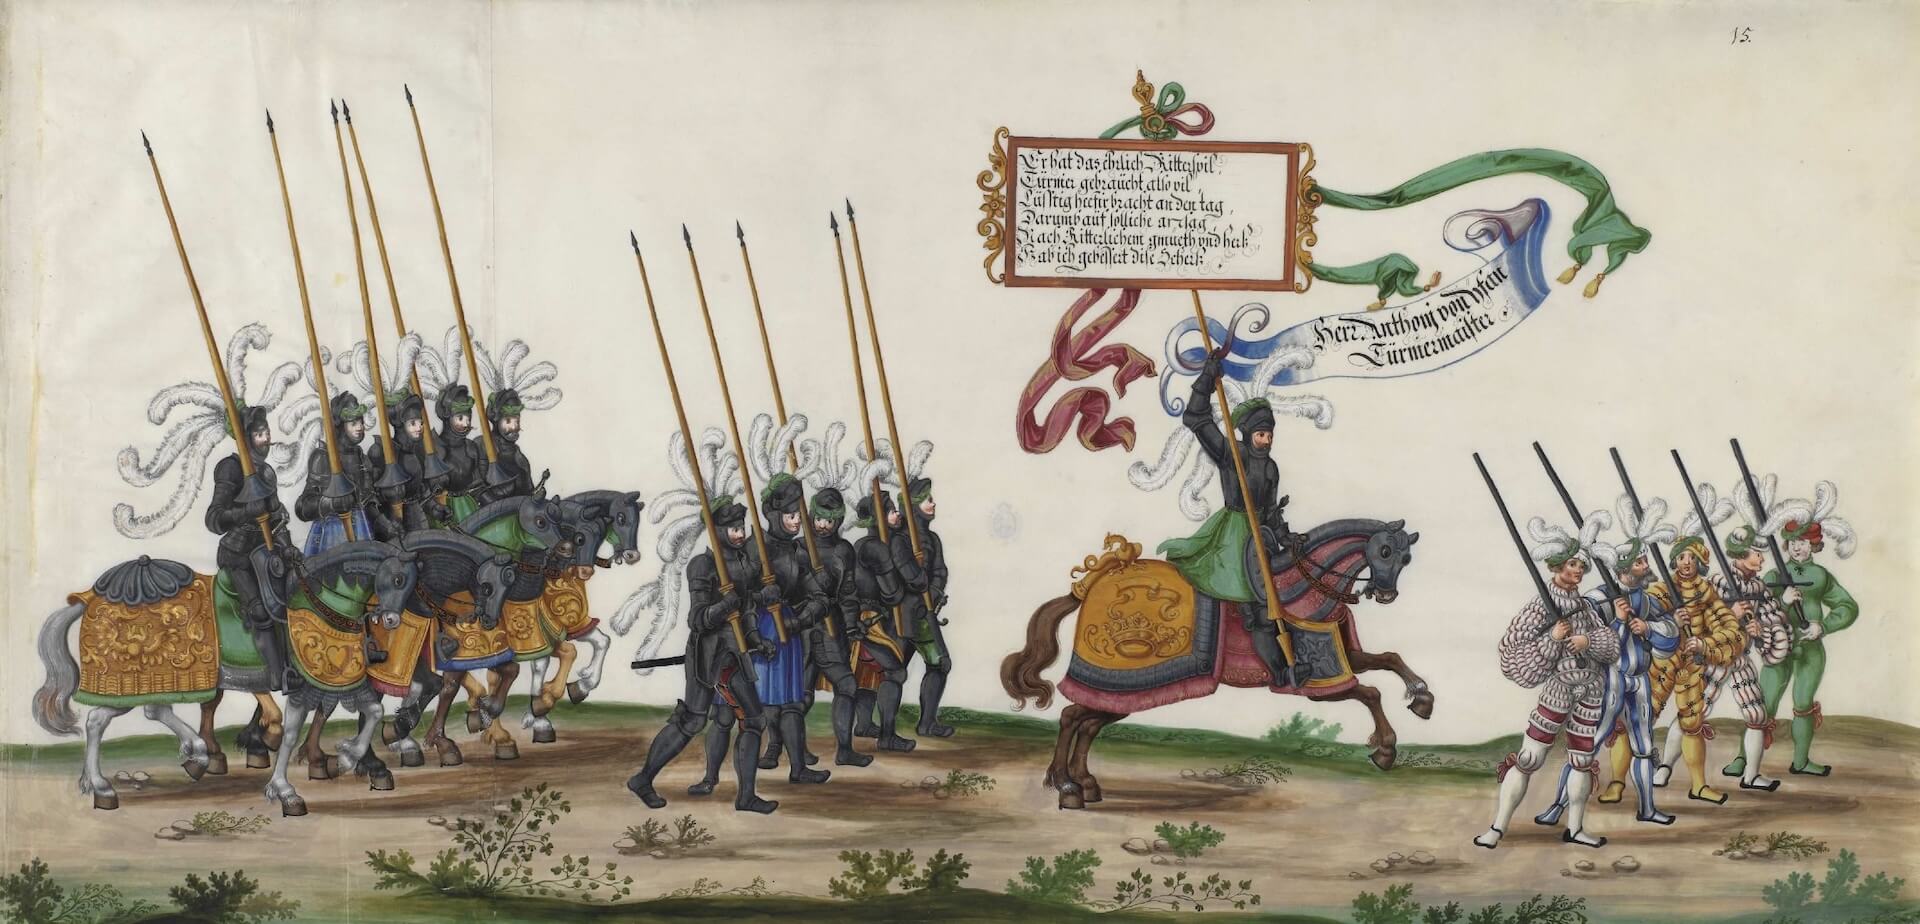 15.
Er hat das ehrlich Ritterspil,
Türnier gebraücht also vil,
Lüsstig herfür bracht an den tag,
Darumb auf solliche anlag,
Nach Ritterlichem gmueth vnd herk,
Hab ich gebessert dise Scherk.
Herr Anthonj von Yfan
Türniermaister.